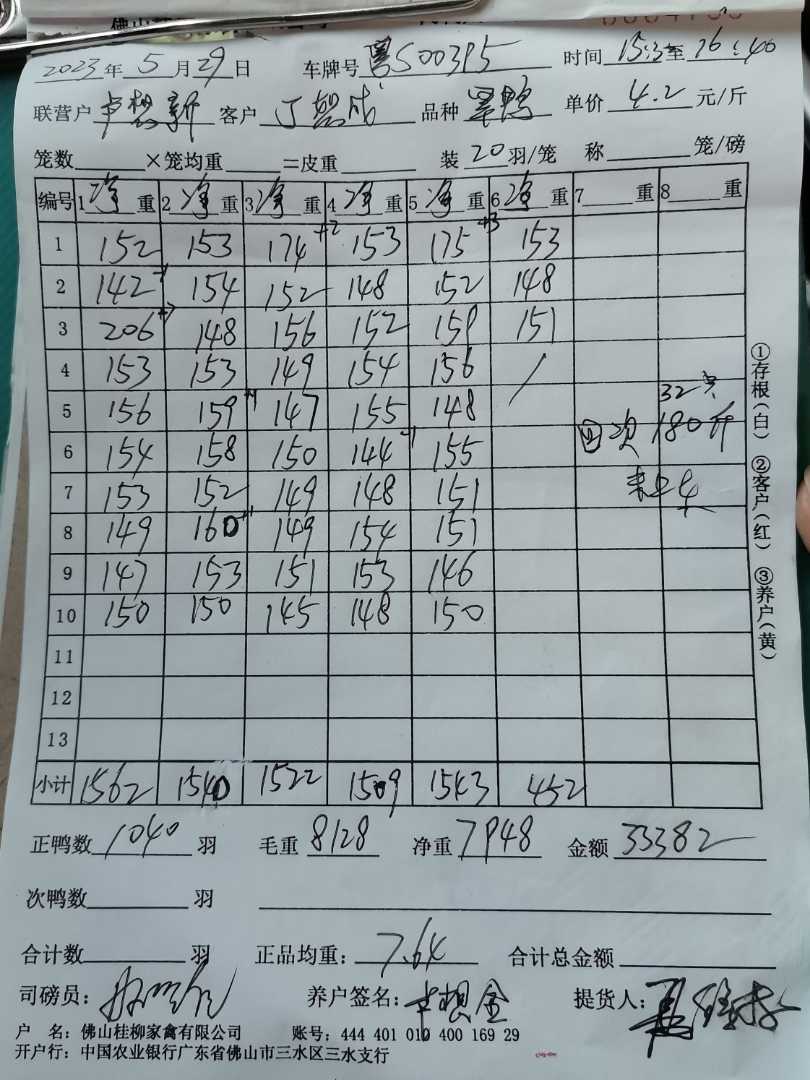 2023年5月29日 车牌号粤S00395 时间15:3至16:40
联营户卢想新 客户 品种 单价4.2元/斤
笼数 ×笼均重 =皮重 装20羽/笼 称 笼/磅
编号 1净重 2净重 3净重 4净重 5净重 6净重 7 重 8 重
1 152 153 174+2 153 175+3 153
2 142-1 154 152 148 152 148
3 206+7 148 156 152 159 151
4 153 153 149 154 156 /
5 156 159+1 147 155 148 32只
6 154 158 150 144-1 155 回次180斤
7 153 152 149 148 151
8 149 160+1 149 154 151
9 147 153 151 153 146
10 150 150 145 148 150
11
12
13
小计 1562 1540 1522 1509 1543 452
①存根(白) ②客户(红) ③养户(黄)
正鸭数1040羽 毛重8128 净重7948 金额33382
次鸭数 羽
合计数 羽 正品均重:7.64 合计总金额
司磅员: 养户签名:卢想金 提货人:
户 名:佛山桂柳家禽有限公司 账号:444 401 010 400 169 29
开户行:中国农业银行广东省佛山市三水区三水支行